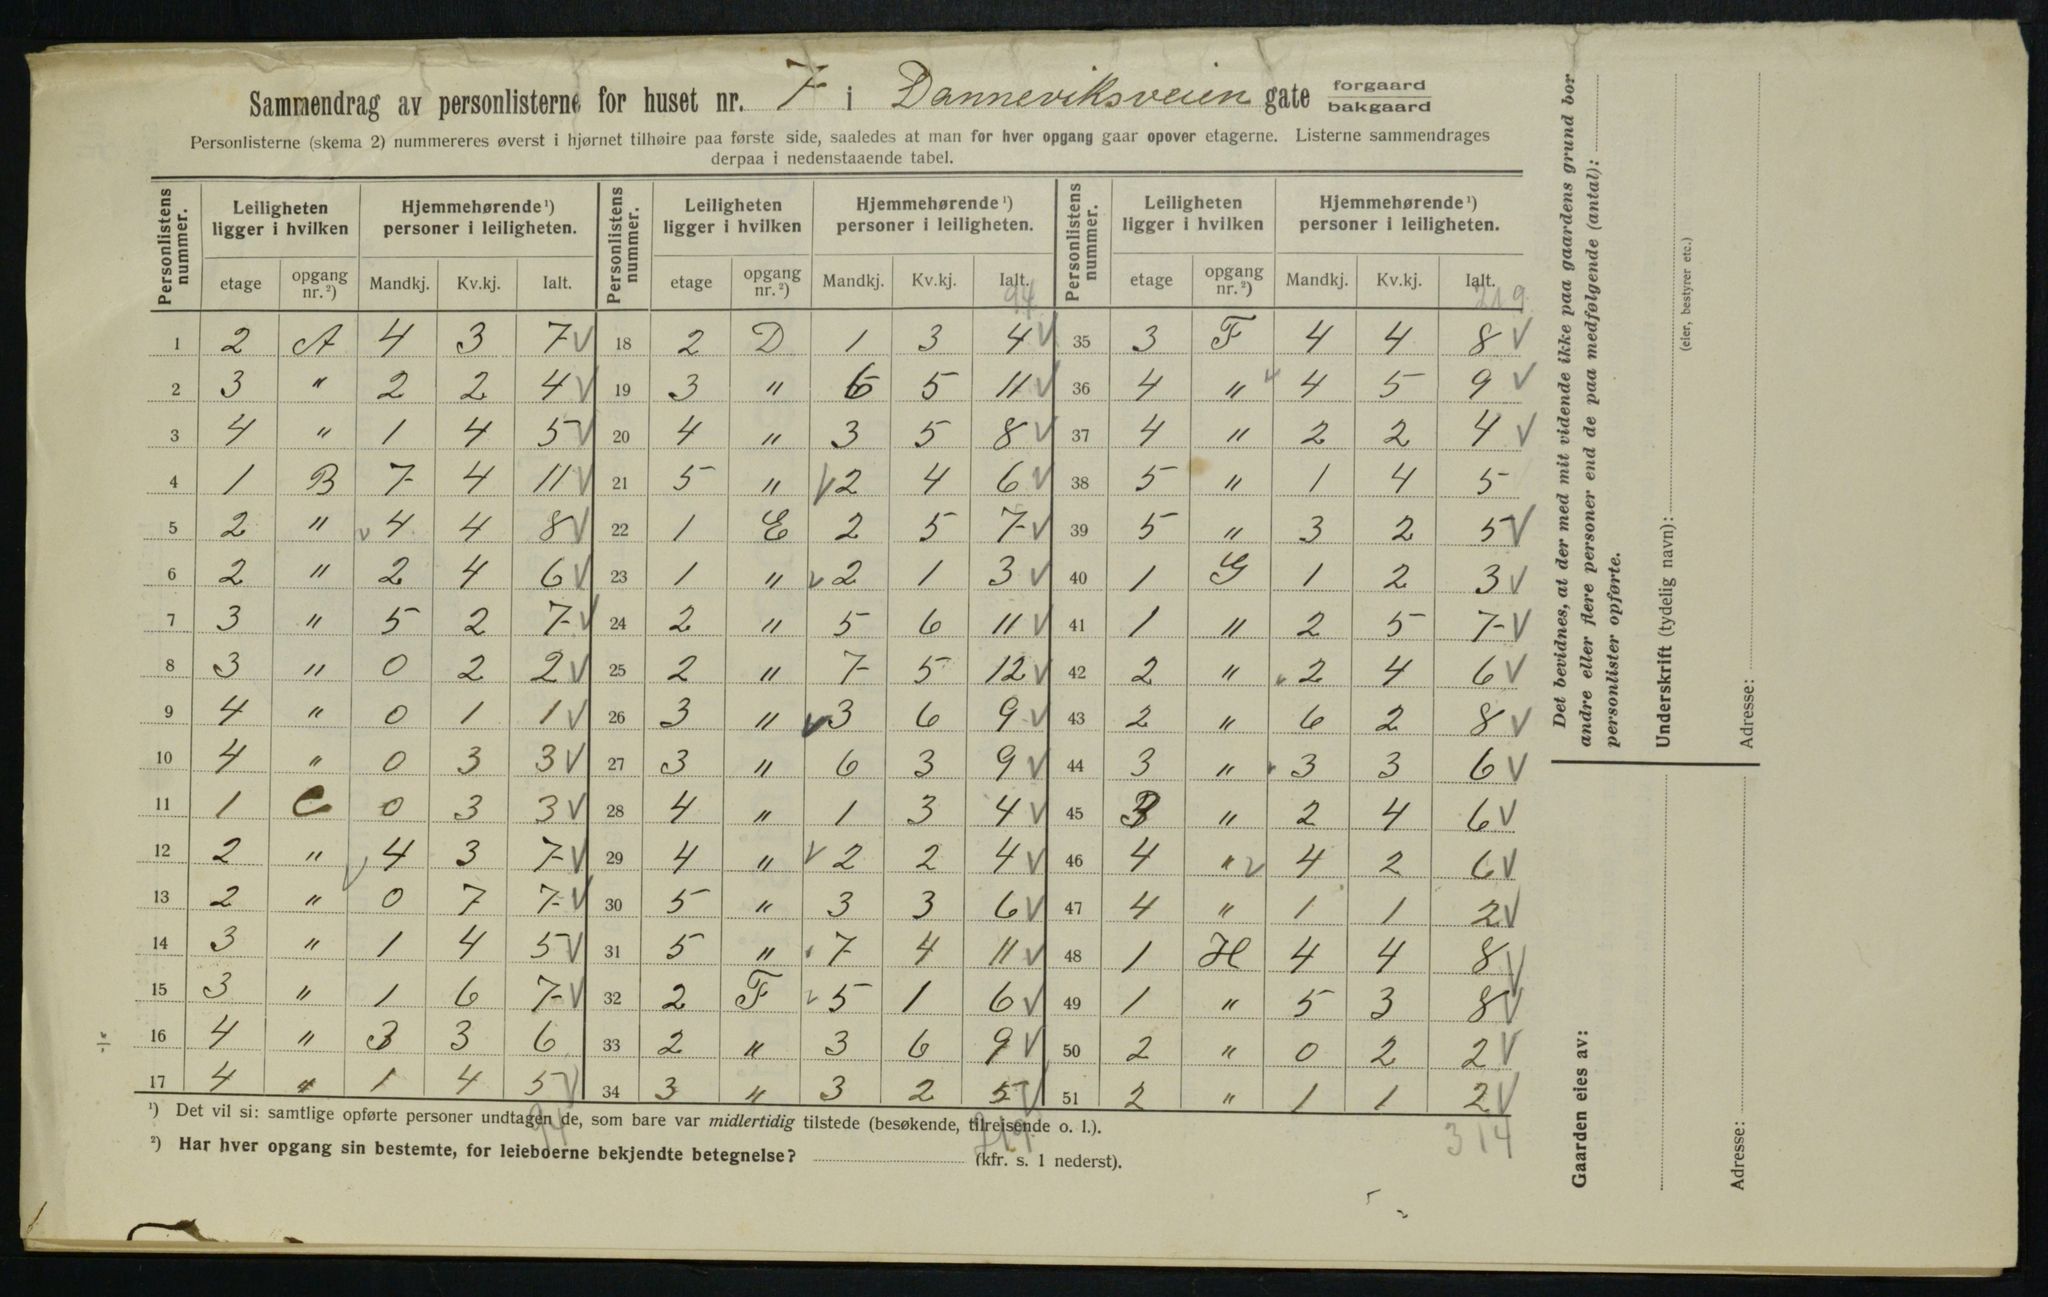 Sammendrag av personlisterne for huset nr. 7 i Danneviksveien gate forgaard bakgaard
Personlisterne (skema 2) nummereres øverst i hjørnet tilhøire paa første side, saaledes at man for hver opgang gaar opover etagerne. Listerne sammendrages
derpaa i nedenstaaende tabel.
Personlistens nummer. Leiligheten ligger i hvilken Hjemmehørende ¹) personer i leiligheten. Personlistens nummer. Leiligheten ligger i hvilken Hjemmehørende ¹) personer i leiligheten. Personlistens nummer. Leiligheten ligger i hvilken Hjemmehørende ¹) personer i leiligheten.
etage opgang nr. ²) Mandkj. Kv.kj. Ialt. etage opgang nr. ²) Mandkj. Kv.kj. Ialt. etage opgang nr. ²) Mandkj. Kv.kj. Ialt.
94 219
1 2 A 4 3 7 18 2 D 1 3 4 35 3 F 4 4 8
2 3 " 2 2 4 19 3 " 6 5 11 36 4 " 4 5 9
3 4 " 1 4 5 20 4 " 3 5 8 37 4 " 2 2 4
4 1 B 7 4 11 21 5 " 2 4 6 38 5 " 1 4 5
5 2 " 4 4 8 22 1 E 2 5 7 39 5 " 3 2 5
6 2 " 2 4 6 23 1 " 2 1 3 40 1 G 1 2 3
7 3 " 5 2 7 24 2 " 5 6 11 41 1 " 2 5 7
8 3 " 0 2 2 25 2 " 7 5 12 42 2 " 2 4 6
9 4 " 0 1 1 26 3 " 3 6 9 43 2 " 6 2 8
10 4 " 0 3 3 27 3 " 6 3 9 44 3 " 3 3 6
11 1 C 0 3 3 28 4 " 1 3 4 45 3 " 2 4 6
12 2 " 4 3 7 29 4 " 2 2 4 46 4 " 4 2 6
13 2 " 0 7 7 30 5 " 3 3 6 47 4 " 1 1 2
14 3 " 1 4 5 31 5 " 7 4 11 48 1 H 4 4 8
15 3 " 1 6 7 32 2 F 5 1 6 49 1 " 5 3 8
16 4 " 3 3 6 33 2 " 3 6 9 50 2 " 0 2 2
17 4 " 1 4 5 34 3 " 3 2 5 51 2 " 1 1 2
94 219 314
¹) Det vil si: samtlige opførte personer undtagen de, som bare var midlertidig tilstede (besøkende, tilreisende o. l.).
²) Har hver opgang sin bestemte, for leieboerne bekjendte betegnelse? (kfr. s. 1 nederst).
Det bevidnes, at der med mit vidende ikke paa gaardens grund bor
andre eller flere personer end de paa medfølgende (antal):
personlister opførte.
Underskrift (tydelig navn):
(eier, bestyrer etc.)
Adresse:
Gaarden eies av:
Adresse: